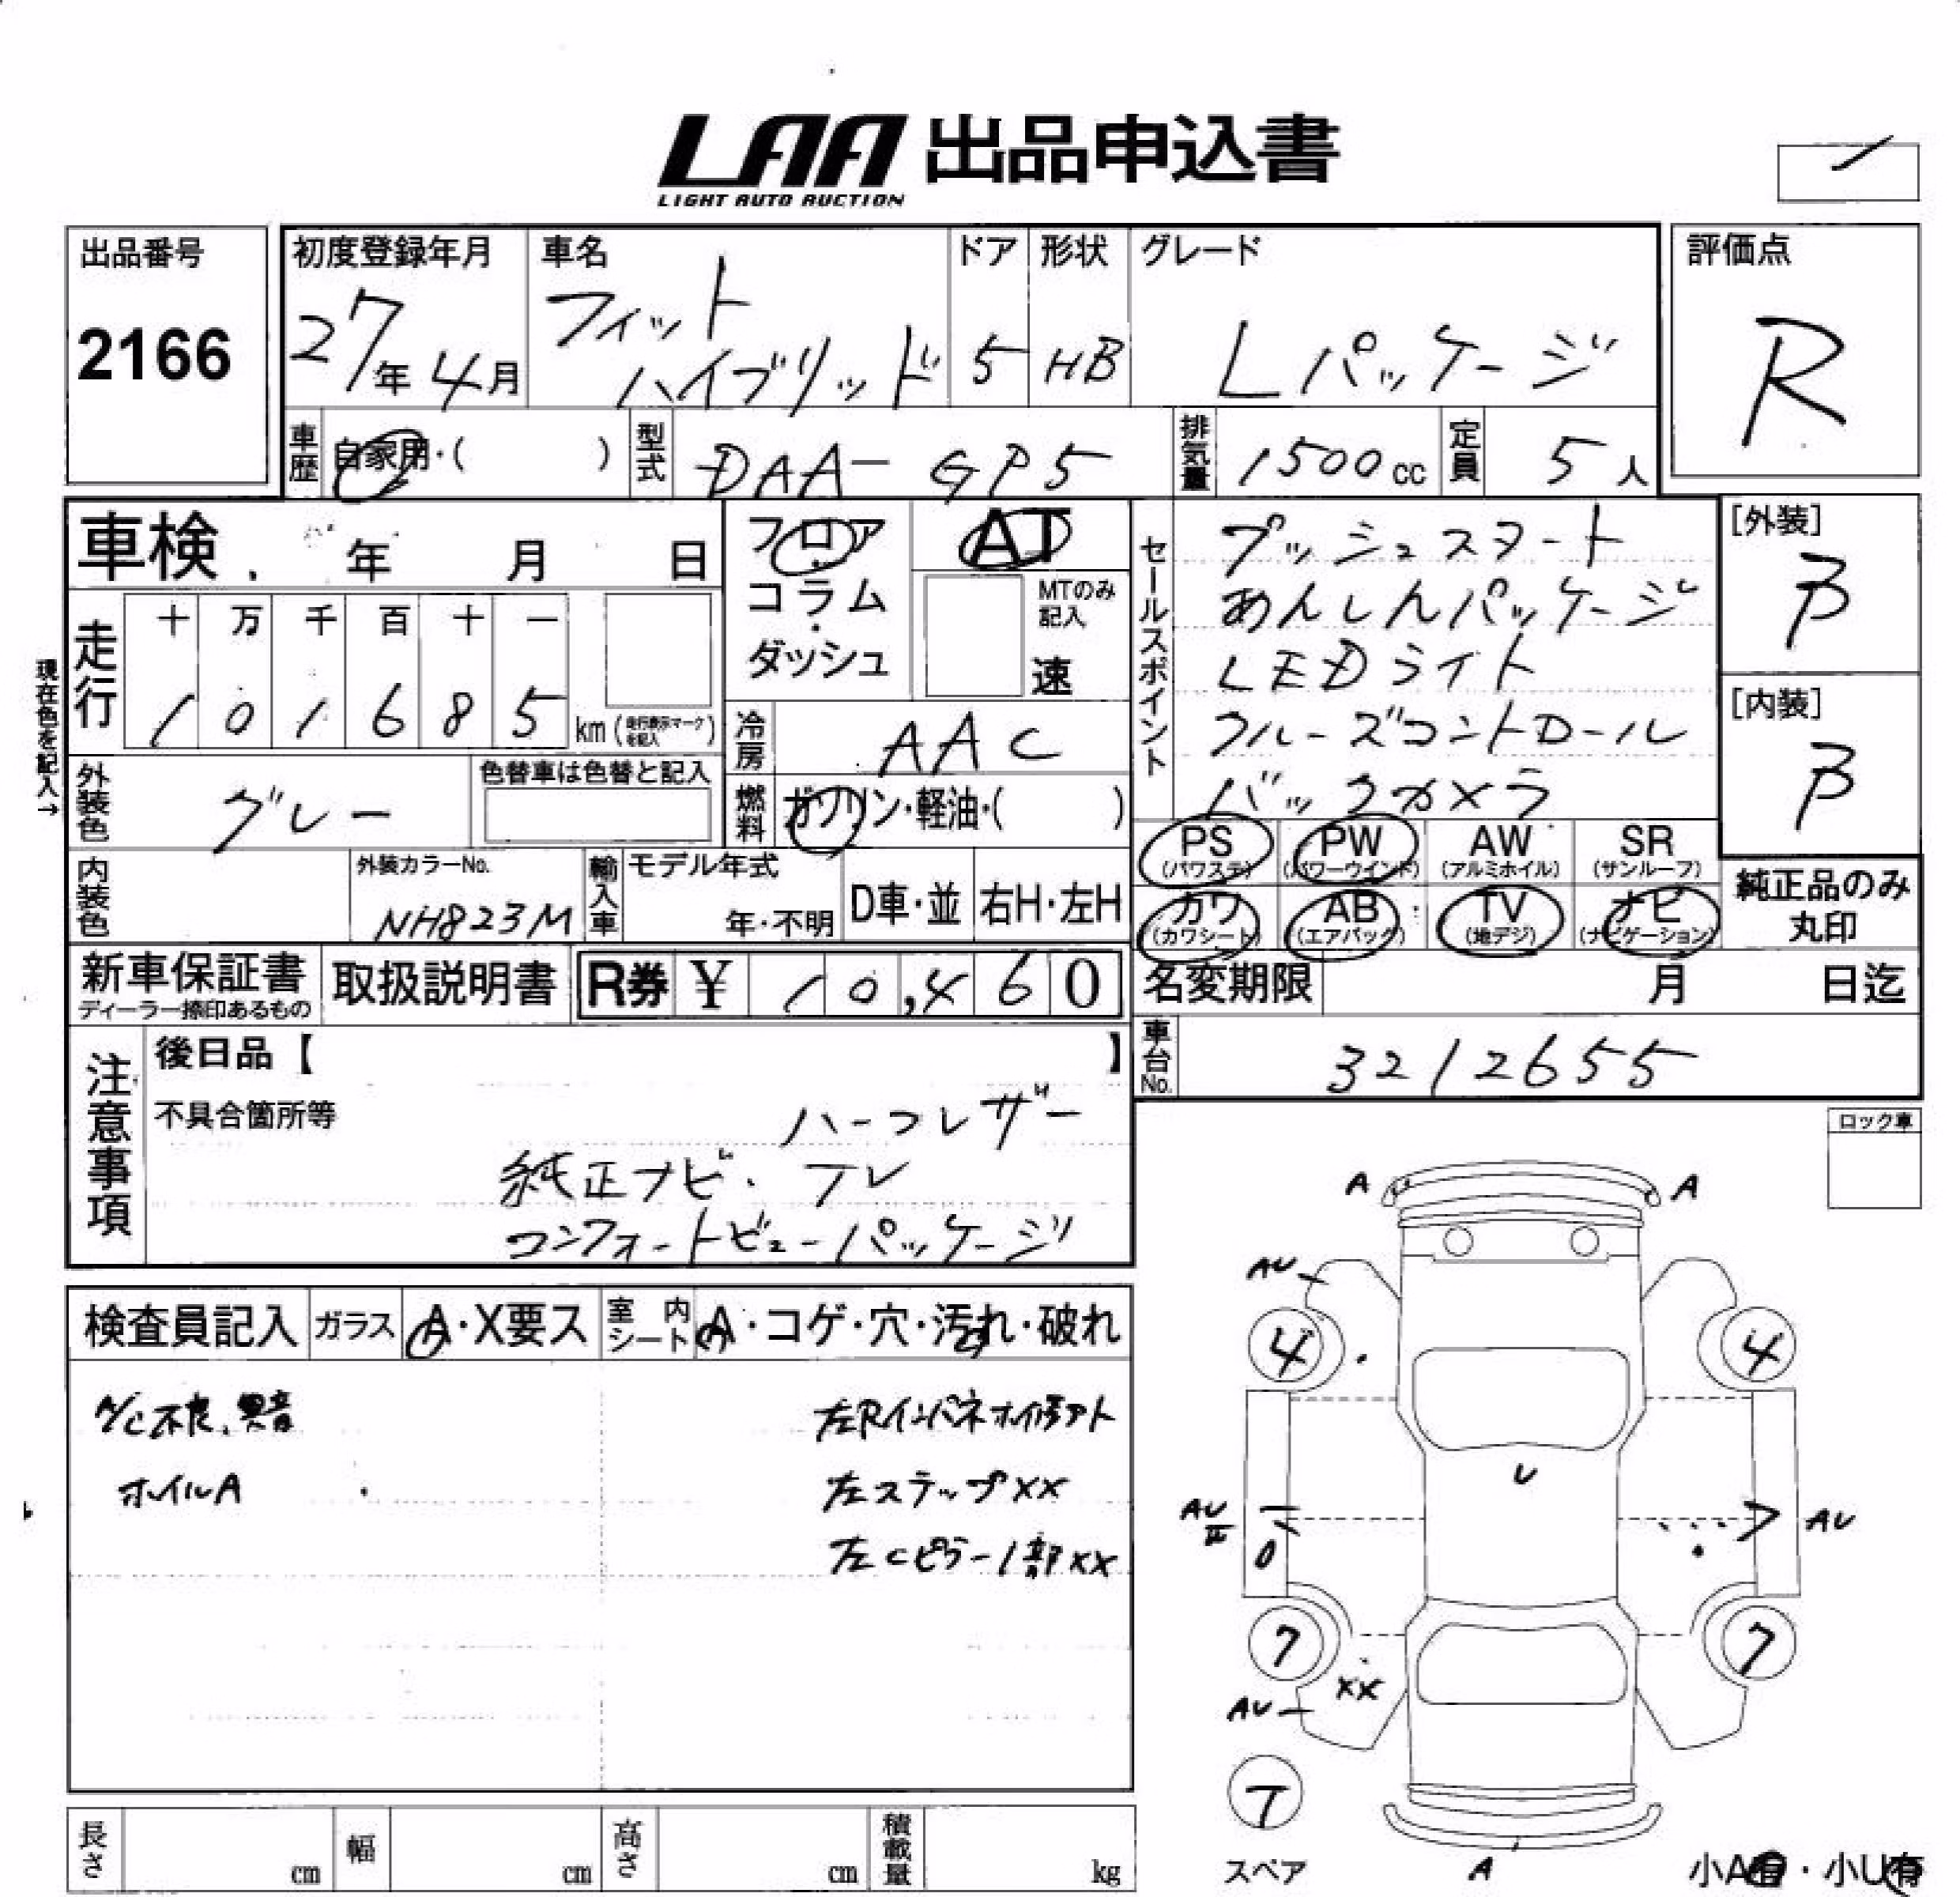 LAA 出品申込書
LIGHT AUTO AUCTION
出品番号
2166
初度登録年月
27年 4月
車名
フィット
ハイブリッド
ドア
5
形状
HB
グレード
Lパッケージ
評価点
R
車歴
自家用・( )
型式
DAA-GP5
排気量
1500cc
定員
5人
車検 年 月 日
フロア
コラム
・
ダッシュ
AT
MTのみ
記入
速
セールスポイント
プッシュスタート
あんしんパッケージ
LEDライト
クルーズコントロール
バックカメラ
[外装]
B
[内装]
B
現在色を記入→
走行
十 万 千 百 十 一
1 0 1 6 8 5 km (走行表示マークを記入)
冷房
AAC
外装色
グレー
色替車は色替と記入
燃料
ガソリン・軽油・( )
PS
(パワステ)
PW
(パワーウインド)
AW
(アルミホイル)
SR
(サンルーフ)
カワ
(カワシート)
AB
(エアバック)
TV
(地デジ)
ナビ
(ナビゲーション)
純正品のみ
丸印
内装色
外装カラーNo.
NH823M
輸入車
モデル年式
年・不明
D車・並
右H・左H
新車保証書
ディーラー捺印あるもの
取扱説明書
R券 ¥ 10,460
名変期限 月 日迄
注意事項
後日品【 】
不具合箇所等
ハーフレザー
純正ナビ・テレ
コンフォートビューパッケージ
車台No.
3212655
ロック車
検査員記入
ガラス
A・X要ス
室内
シート
A・コゲ・穴・汚れ・破れ
A/C不良、異音
ホイルA
左Rインパネホイル修アト
左ステップXX
左Cピラー1部XX
A A
AU
4 4
U
AU
AU
7 7
XX
AU
T
スペア
A
小A有・小U有
長さ cm
幅 cm
高さ cm
積載量 kg